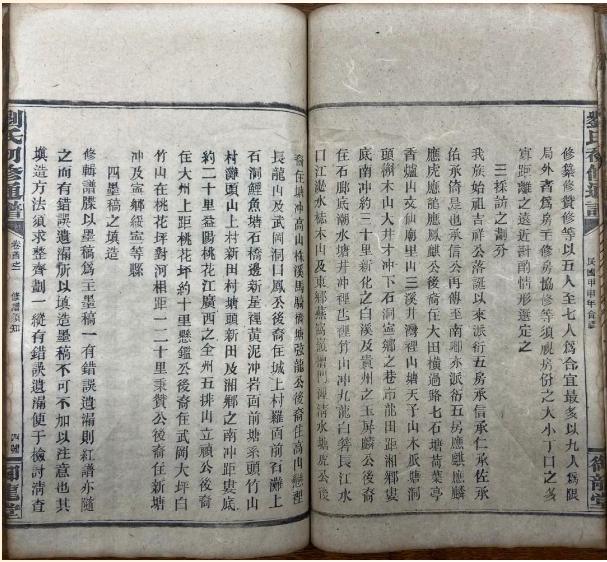 劉氏
修譜
民國甲申年合譜
御龍堂
修纂修贊修等以五人至七人爲合宜最多以九人爲限
局外者爲房主修房協修等須視房份之大小丁口之多
寡距離之遠近斟酌情形選定之
三採訪之劃分
我族始祖吉祥公落誕以來派衍五房承信承仁承佐承
佑承倚是也承信公再傳至南珊亦派衍五房應麒應麟
應虎應龍應鳳麒公後裔住大田橫過路七石塘荷葉亭
香爐山文仙廟里山三溪井灣裡山塘天子山木瓜塘洞
頭樹木山大井才冲下石洞寧鄉之巷市龍田距湘鄉婁
底南冲約三十里新化之白溪及貴州之玉屏麟公後裔
住石廊底潮水塘井冲裡岳裡竹山冲九龍白箕長江水
口江水木山及東鄉清水塘虎公後
裔住塘冲高山株溪馬騎橋塘龍公後裔住高山裡
長龍山及武岡洞口鳳公後裔住城上村羅向前石灘上
石洞鯉魚塘石橋邊新屋裡黄泥冲岩向前塘系頭竹山
村灘頭山上村新田村塘頭新田及湘鄉之南冲距婁底
約二十里益陽桃花江廣西之全州五排山立禎公後裔
住大州上距桃花坪約十里懸鑑公後裔住武岡大坪白
竹山在桃花坪對河相距一二十里秉贊公後裔住新塘
冲及寧鄉綏寧等縣
四墨稿之填造
修輯譜牒以墨稿爲主墨稿一有錯誤遺漏則紅譜亦隨
之而有錯誤遺漏所以填造墨稿不可不加以注意也其
填造方法須求整齊劃一縱有錯誤遺漏便于檢討清查
劉氏初修通譜
卷首之
修譜須知
四號
御龍堂